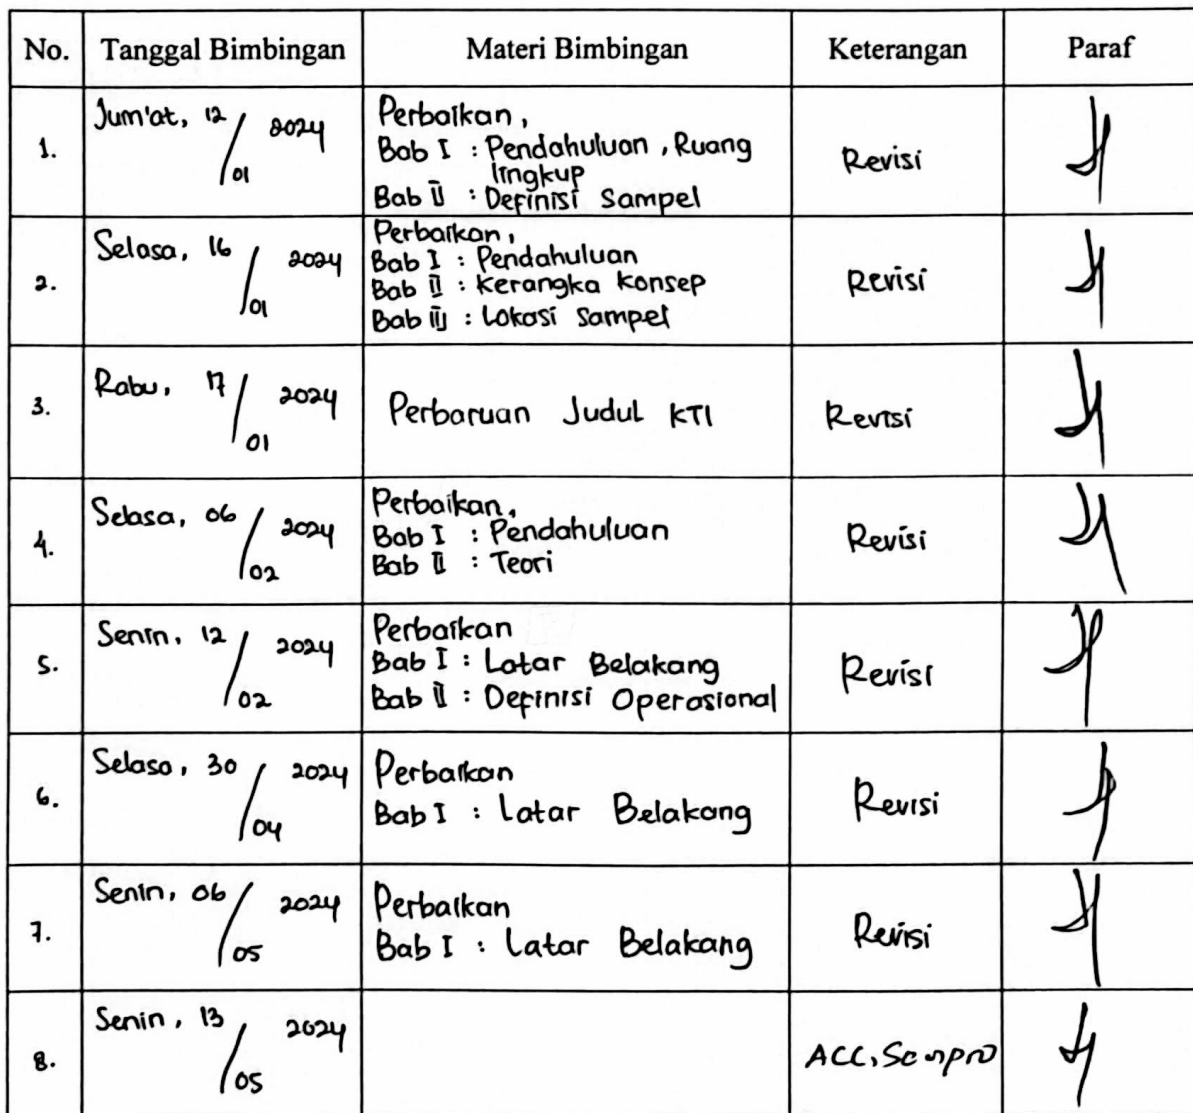 No. Tanggal Bimbingan Materi Bimbingan Keterangan Paraf
1. Jum'at, 12/01 2024 Perbaikan, Revisi
Bab I : Pendahuluan, Ruang
lingkup
Bab II : Definisi Sampel
2. Selasa, 16/01 2024 Perbaikan, Revisi
Bab I : Pendahuluan
Bab II : Kerangka Konsep
Bab III : Lokasi Sampel
3. Rabu, 17/01 2024 Perbaruan Judul KTI Revisi
4. Selasa, 06/02 2024 Perbaikan, Revisi
Bab I : Pendahuluan
Bab II : Teori
5. Senin, 12/02 2024 Perbaikan Revisi
Bab I : Latar Belakang
Bab II : Definisi Operasional
6. Selasa, 30/04 2024 Perbaikan Revisi
Bab I : Latar Belakang
7. Senin, 06/05 2024 Perbaikan Revisi
Bab I : Latar Belakang
8. Senin, 13/05 2024 ACC, Sempro